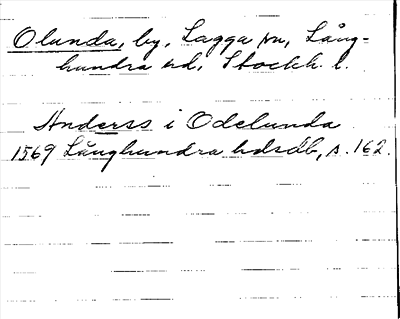 Olunda, by, Lagga sn, Lång-
hundra hd, Stockh. l.
Anderss i Odelunda
1569 Långhundra hdsdb, s. 162.